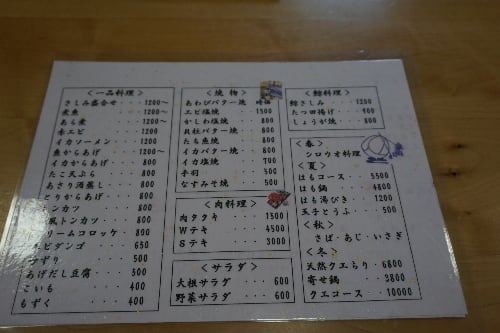 ＜一品料理＞
さしみ盛合せ・・・1200～
煮魚・・・1200～
あら煮・・・1200～
赤エビ・・・
イカソーメン・・・1200
魚からあげ・・・1200～
イカからあげ・・・800
たこ天ぷら・・・800
あさり酒蒸し・・・800
とりからあげ・・・800
トンカツ・・・800
風トンカツ・・・800
リームコロッケ・・・800
ビダンゴ・・・650
ずり・・・550
あげだし豆腐・・・500
こいも・・・400
もずく・・・400
＜焼物＞
あわびバター焼 時価
エビ塩焼・・・1000
かしわ塩焼・・・800
貝柱バター焼・・・800
たも魚焼・・・800
イカバター焼・・・800
イカ塩焼・・・700
手羽・・・500
なすみそ焼・・・500
＜肉料理＞
肉タタキ・・・1500
Wテキ・・・4500
Sテキ・・・3000
＜サラダ＞
大根サラダ・・・600
野菜サラダ・・・600
＜鯨料理＞
鯨さしみ・・・1200
たつ田揚げ・・・1000
しょうが焼・・・800
＜春＞
シロウオ料理
＜夏＞
はもコース・・・5500
はも鍋・・・4800
はも湯びき・・・1200
玉子とうふ・・・500
＜秋＞
さば・あじ・いさぎ
＜冬＞
天然クエちり・・6800
寄せ鍋・・・3800
クエコース・・・10000